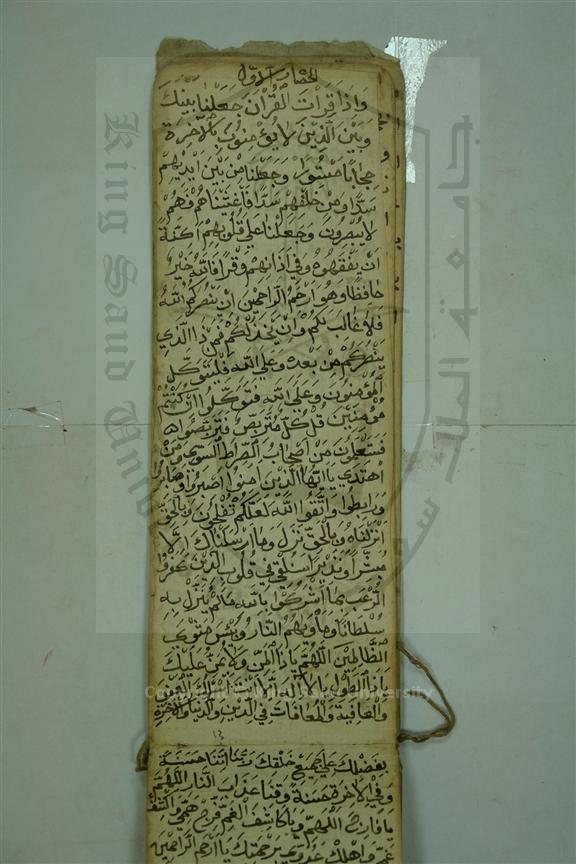 واذا قرات القران جعلنا بينك
وبين الذين لا يؤمنون بالاخرة
حجابا مستورا وجعلنا من بين ايديهم
سدا ومن خلفهم سدا فاغشيناهم فهم
لا يبصرون وجعلنا علي قلوبهم اكنة
ان يفقهوه وفي اذانهم وقرا فالله خير
حافظا وهو ارحم الراحمين ان ينصركم الله
فلا غالب لكم وان يخذلكم فمن ذا الذي
ينصركم من بعده وعلي الله فليتوكل
المؤمنون وعلي الله فتوكلوا ان كنتم
مؤمنين قل كل متربص فتربصوا
فستعلمون من اصحاب الصراط السوي ومن
اهتدي يا ايها الذين امنوا اصبروا وصابروا
ورابطوا واتقوا الله لعلكم تفلحون وبالحق
انزلناه وبالحق نزل وما ارسلناك الا
مبشرا ونذيرا سنلقي في قلوب الذين كفروا
الرعب بما اشركوا بالله ما لم ينزل به
سلطانا وماويهم النار وبئس مثوي
الظالمين اللهم يا ذا المن ولا يمن عليك
يا ذا الطول
والعافية والمعافات في الدين والدنيا والاخرة
بفضلك علي جميع خلقك ربنا اتنا حسنة
وفي الاخرة حسنة وقنا عذاب النار اللهم
يا فارج الهم ويا كاشف الغم فرج همي واكشف
غمي واهلك عدوي برحمتك يا ارحم الراحمين
King Saud University
جامعة الملك سعود
Copyright © King Saud University